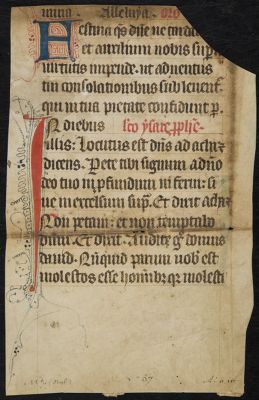 inicia. Alleluya. oro
Festina qs dñe ne tar
et auxilium nobis sup
uirtutis inpende. ut aduentus
tui consolationibus subleuent
qui in tua pietate confidunt p.
In diebus sco ysaie pphe
illis: Locutus est dñs ad achaz
dicens. Pete tibi signum a dño
deo tuo in pfundum inferni: si
ue in excelsum supra. Et dixit achaz
Non petam: et non temptabo
dnm. Et dixit. Audite g domus
dauid. Nūquid parum uob est
molestos esse hominibz qz molesti
37